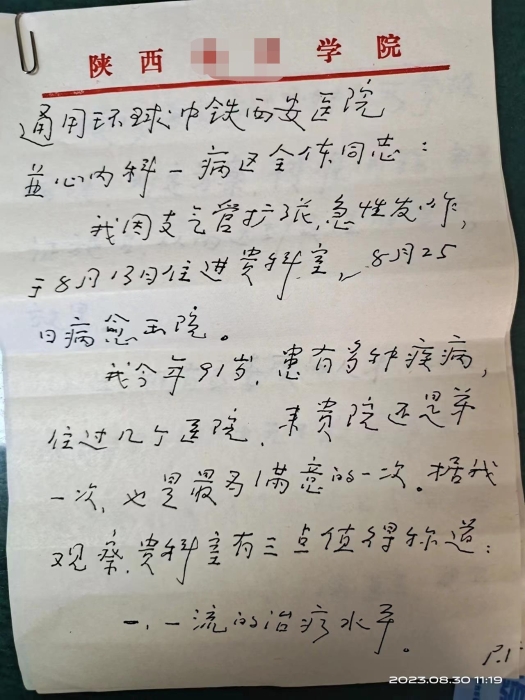 陕西 学院
通用环球中铁西安医院
并心内科一病区全体同志：
我因支气管扩张，急性发作，
于8月13日住进贵科室，8月25
日病愈出院。
我今年91岁，患有多种疾病，
住过几个医院，来贵院还是第
一次，也是最为满意的一次。据我
观察，贵科室有三点值得称道：
一、一流的治疗水平。
P.1
2023.08.30 11:19